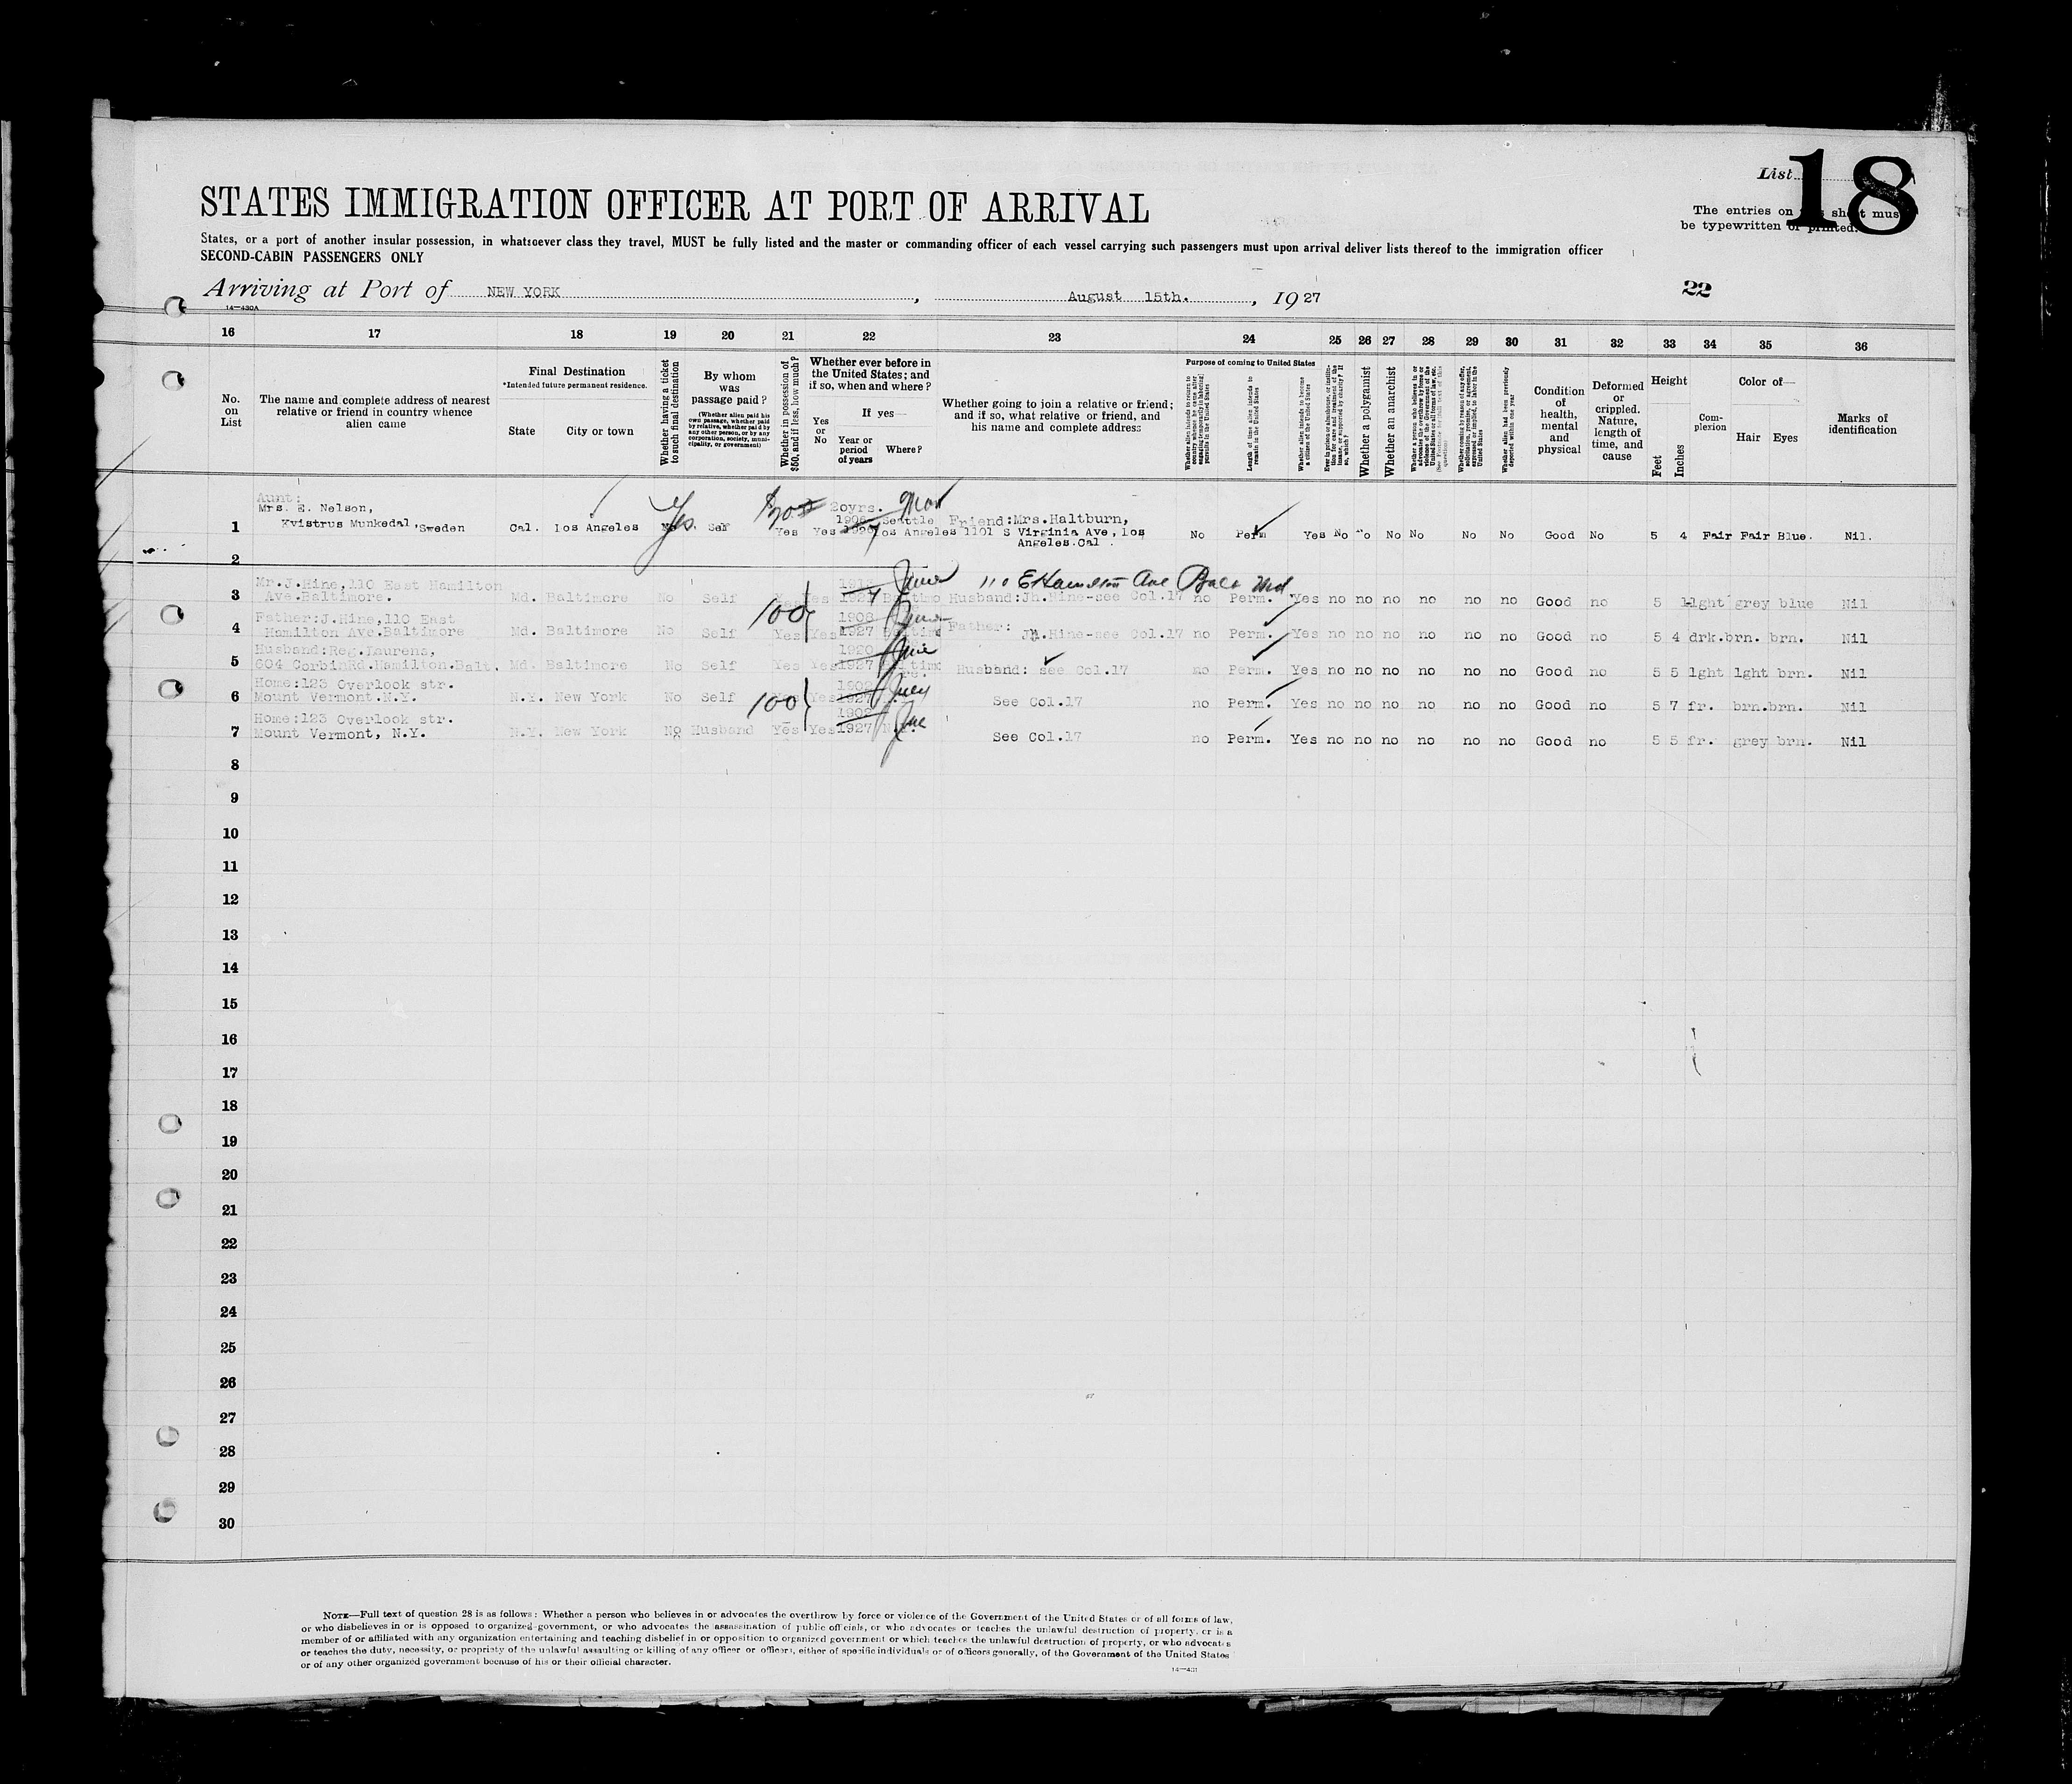 List
18
The entries on this sheet must
be typewritten or printed.
STATES IMMIGRATION OFFICER AT PORT OF ARRIVAL
States, or a port of another insular possession, in whatsoever class they travel, MUST be fully listed and the master or commanding officer of each vessel carrying such passengers must upon arrival deliver lists thereof to the immigration officer
SECOND-CABIN PASSENGERS ONLY
Arriving at Port of NEW YORK, August 15th., 1927
22
14—430A
16 17 18 19 20 21 22 23 24 25 26 27 28 29 30 31 32 33 34 35 36
No. on List
The name and complete address of nearest relative or friend in country whence alien came
Final Destination
*Intended future permanent residence.
State
City or town
Whether having a ticket to such final destination
By whom was passage paid?
(Whether alien paid his own passage, whether paid by relative, whether paid by any other person, or by any corporation, society, municipality, or government)
Whether in possession of $50, and if less, how much?
Whether ever before in the United States; and if so, when and where?
Yes or No
If yes—
Year or period of years
Where?
Whether going to join a relative or friend; and if so, what relative or friend, and his name and complete address
Purpose of coming to United States
Whether alien intends to return to country whence he came after engaging temporarily in laboring pursuits in the United States
Length of time alien intends to remain in the United States
Whether alien intends to become a citizen of the United States
Ever in prison or almshouse, or institution for care and treatment of the insane, or supported by charity? If so, which?
Whether a polygamist
Whether an anarchist
Whether coming by reason of any offer, solicitation, promise, or agreement, expressed or implied, to labor in the United States
Whether alien had been previously deported within one year
Condition of health, mental and physical
Deformed or crippled. Nature, length of time, and cause
Height
Feet
Inches
Complexion
Color of—
Hair
Eyes
Marks of identification
Aunt:
Mrs. E. Nelson,
1 Kvistrus Munkedal, Sweden Cal. Los Angeles Yes. Self Yes Yes 20yrs. Seattle Los Angeles Friend:Mrs.Haltburn, 1101 S Virginia Ave, Los Angeles.Cal. No Perm Yes No No No No No No Good No 5 4 Fair Fair Blue. Nil.
2
Mr.J.Hine,110 East Hamilton
110 E Hamilton Ave Balt Md
3 Ave.Baltimore. Md. Baltimore No Self Yes Yes 1927 June Husband:Jh.Hine-see Col.17 no Perm. Yes no no no no no no Good no 5 1 lght grey blue Nil
Father:J.Hine,110 East
4 Hamilton Ave.Baltimore Md. Baltimore No Self 100 Yes Yes 1908 1927 June Father: Jh.Hine-see Col.17 no Perm. Yes no no no no no no Good no 5 4 drk.brn. brn. Nil
Husband:Reg.Laurens,
5 604 CorbinRd.Hamilton.Balt. Md. Baltimore No Self Yes Yes 1920 1927 June Husband: see Col.17 no Perm. Yes no no no no no no Good no 5 5 lght lght brn. Nil
Home:123 Overlook str.
6 Mount Vermont.N.Y. N.Y. New York No Self 100 Yes Yes 1902 1927 July See Col.17 no Perm. Yes no no no no no no Good no 5 7 fr. brn.brn. Nil
Home:123 Overlook str.
7 Mount Vermont, N.Y. N.Y. New York No Husband Yes Yes 1902 1927 See Col.17 no Perm. Yes no no no no no no Good no 5 5 fr. grey brn. Nil
8
9
10
11
12
13
14
15
16
17
18
19
20
21
22
23
24
25
26
27
28
29
30
NOTE—Full text of question 28 is as follows: Whether a person who believes in or advocates the overthrow by force or violence of the Government of the United States or of all forms of law,
or who disbelieves in or is opposed to organized government, or who advocates the assassination of public officials, or who advocates or teaches the unlawful destruction of property, or is a
member of or affiliated with any organization entertaining and teaching disbelief in or opposition to organized government or which teaches the unlawful destruction of property, or who advocates
or teaches the duty, necessity, or propriety of the unlawful assaulting or killing of any officer or officers, either of specific individuals or of officers generally, of the Government of the United States
or of any other organized government because of his or their official character.
14—431